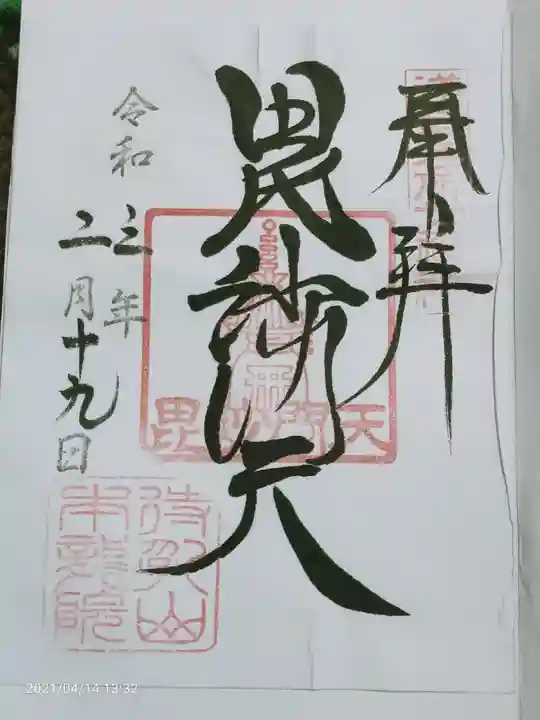 奉拝
毘沙门天
毘沙門天
令和三年
二月十九日
待乳山
本龍院
2021/04/14 13:32